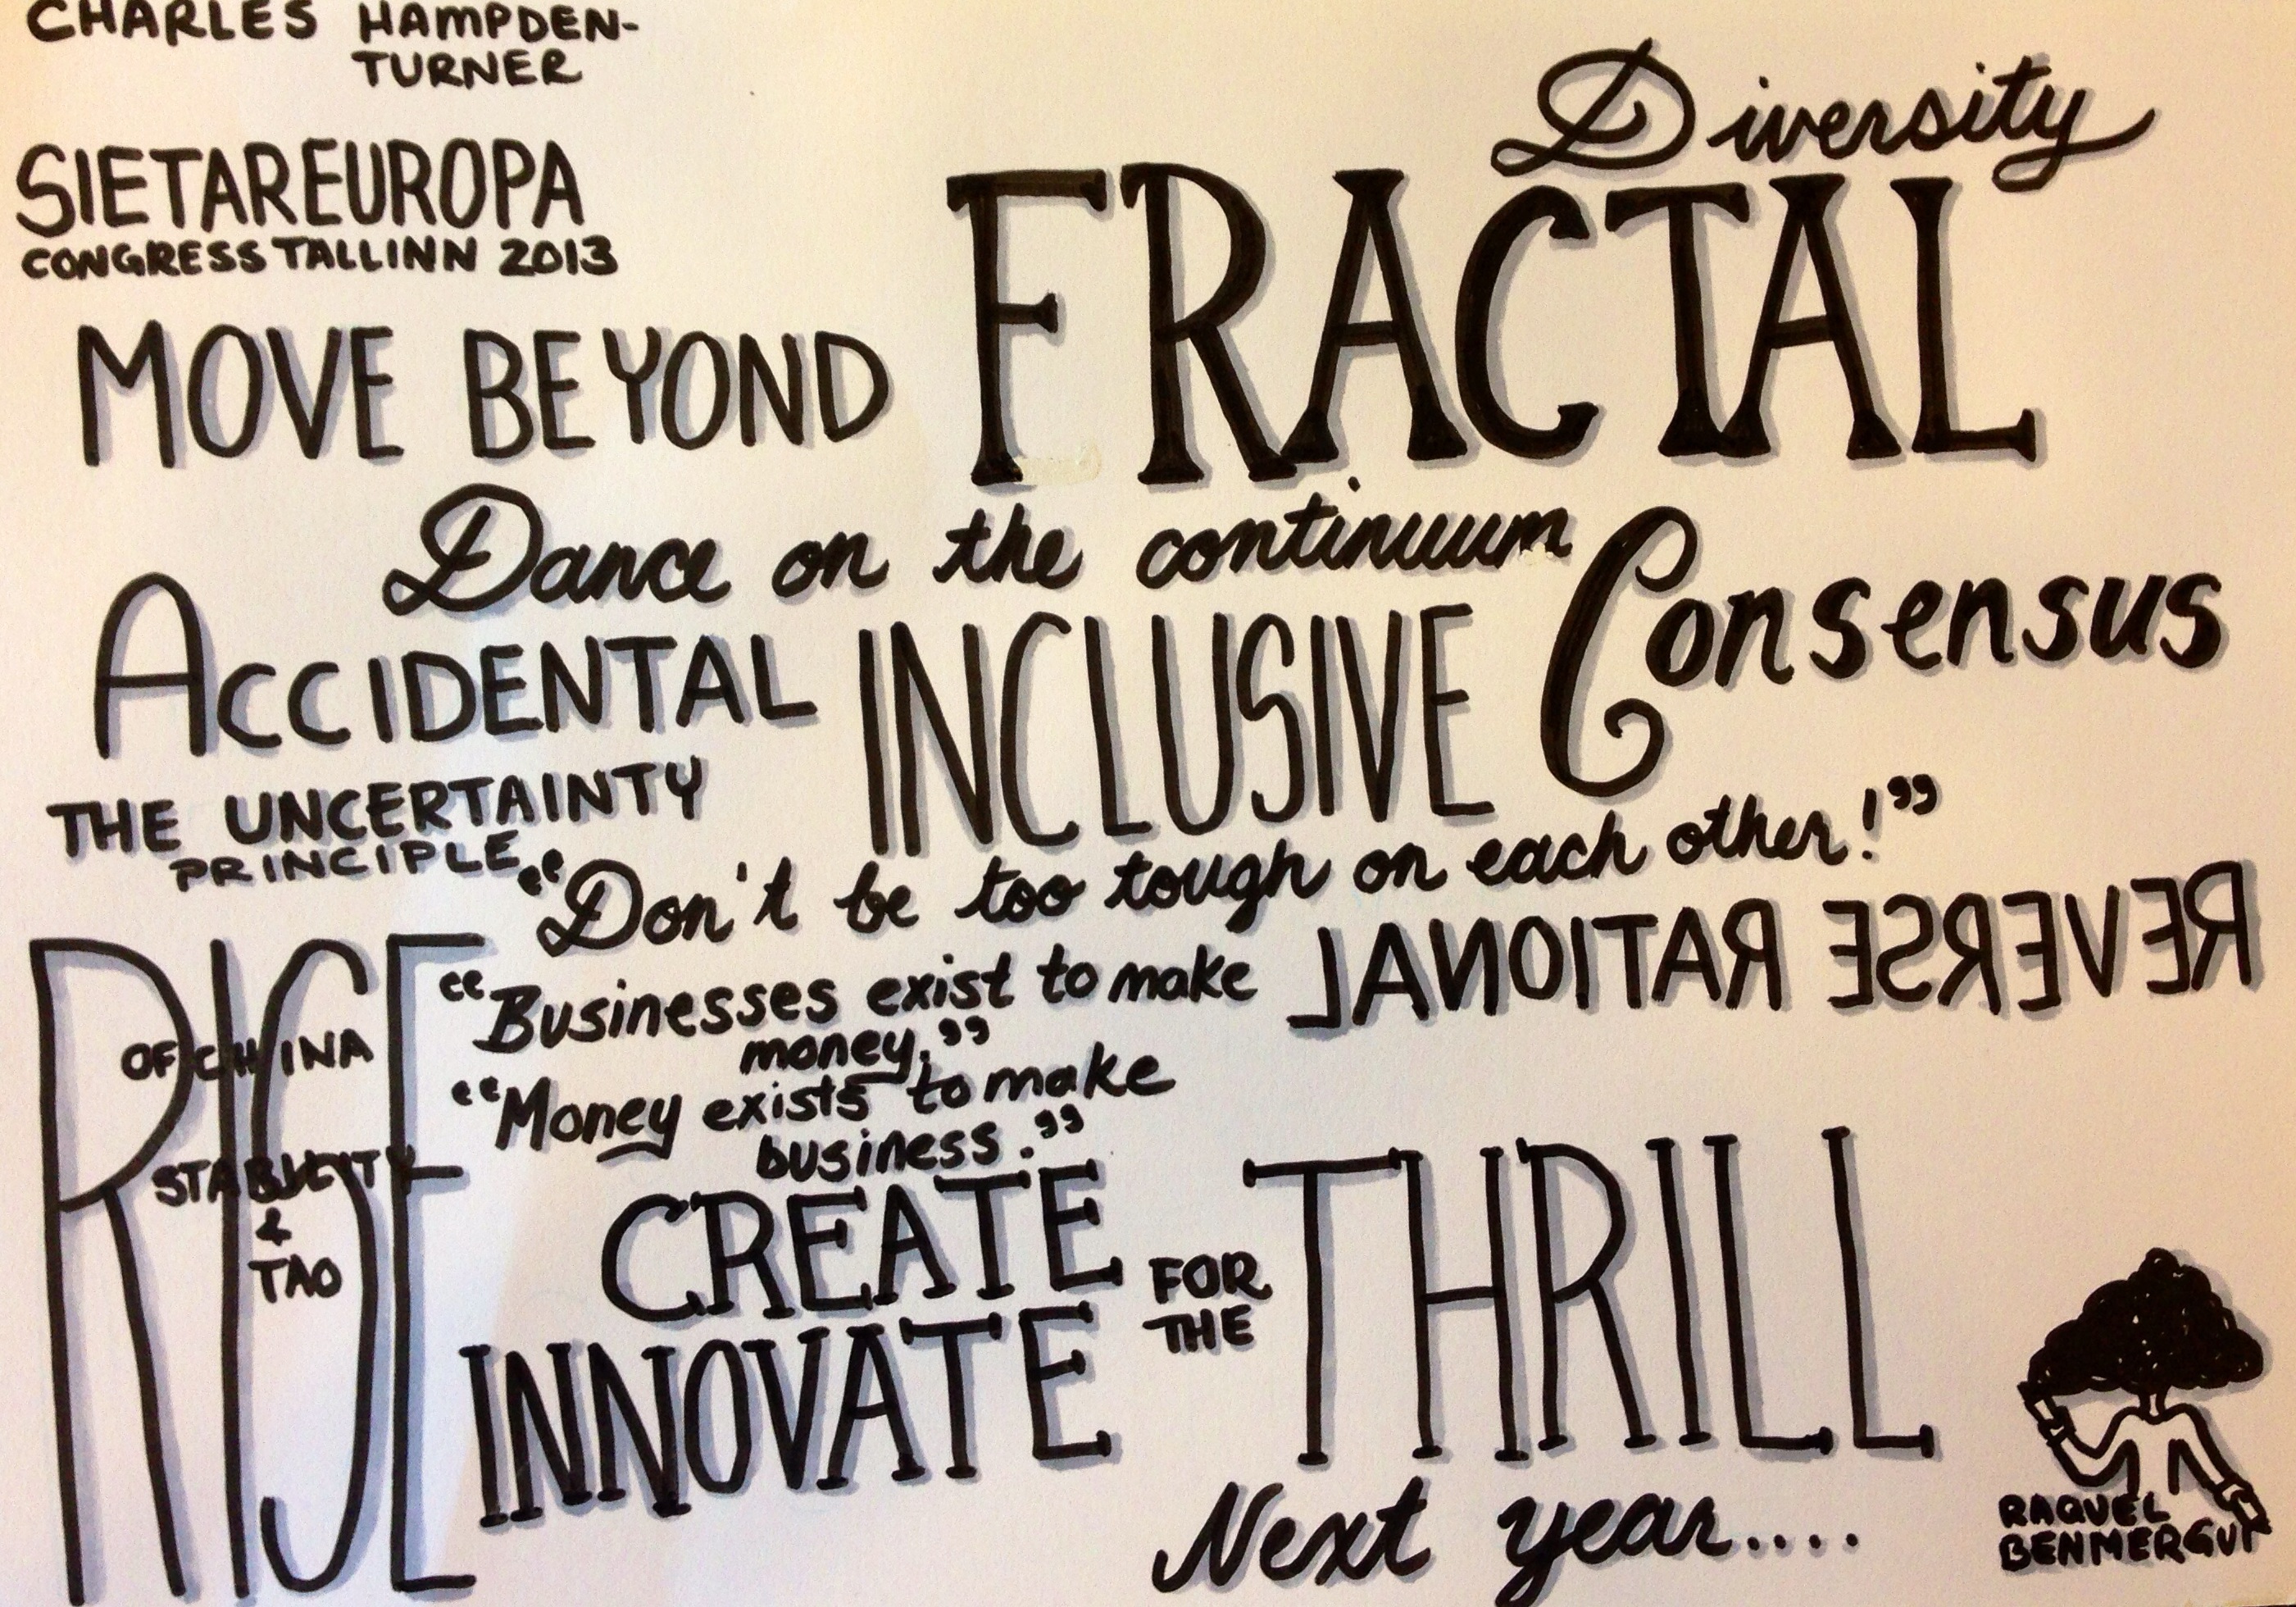 CHARLES HAMPDEN-
TURNER
SIETAREUROPA
CONGRESS TALLINN 2013
Diversity
MOVE BEYOND FRACTAL
Dance on the continuum
ACCIDENTAL INCLUSIVE Consensus
THE UNCERTAINTY
PRINCIPLE
"Don't be too tough on each other!"
REVERSE RATIONAL
"Businesses exist to make
money."
"Money exists to make
business."
RISE
OF CHINA
STABILITY
&
TAO
CREATE
INNOVATE
FOR
THE
THRILL
Next year....
RAQUEL
BENMERGUI